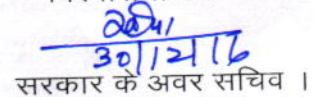 30/12/16
सरकार के अवर सचिव ।